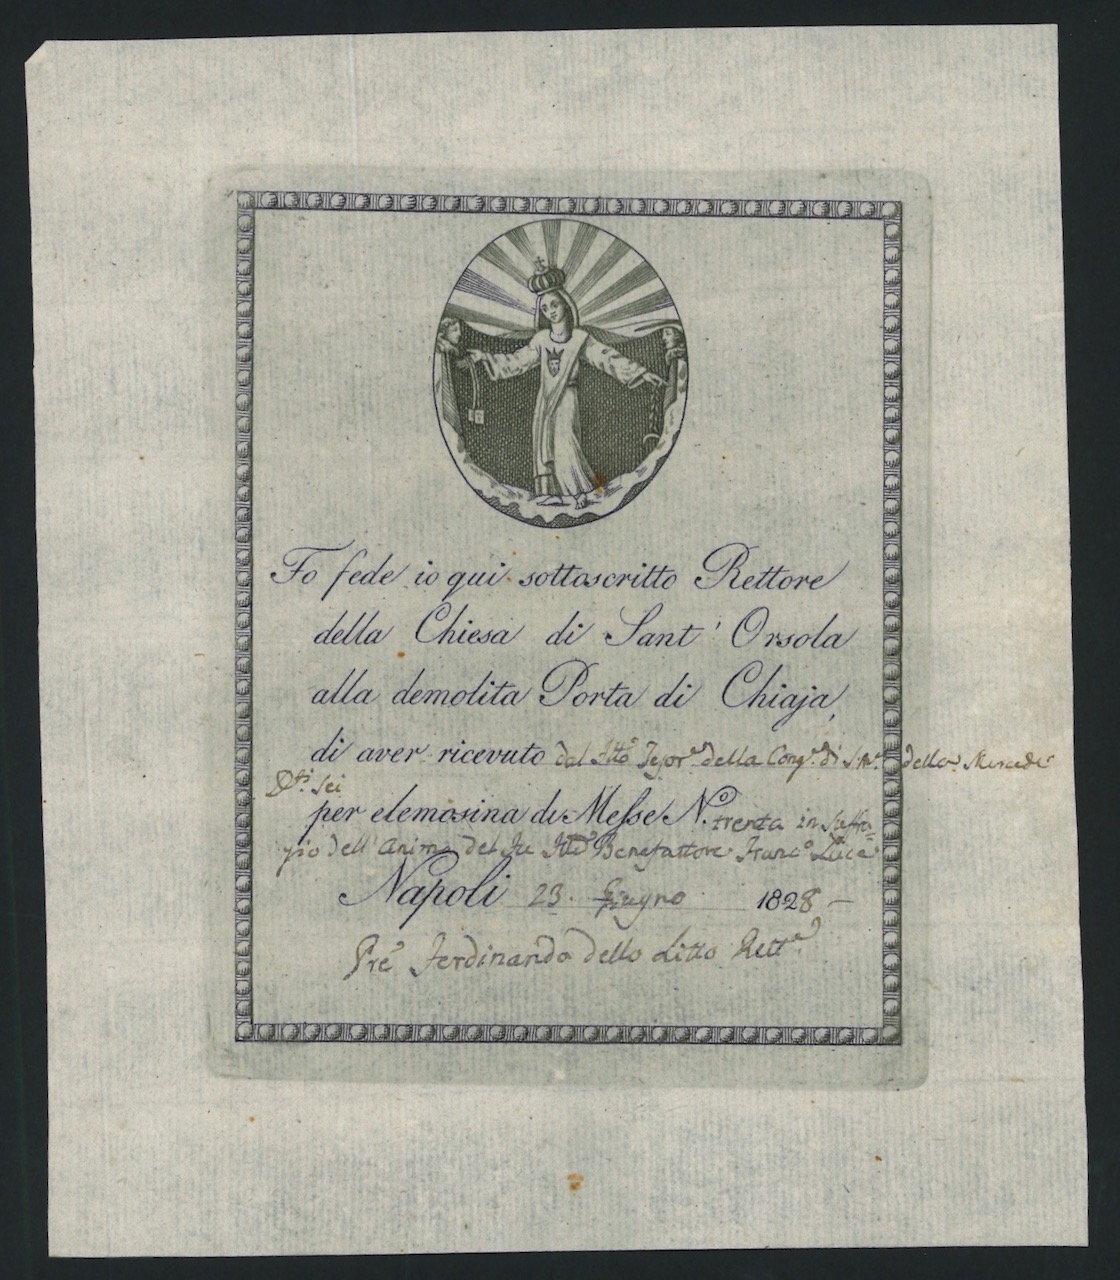 Fo fede io qui sottoscritto Rettore
della Chiesa di Sant' Orsola
alla demolita Porta di Chiaja,
di aver ricevuto dal Tesor.e della Cong.e di S. M.a della Mercede
D.ti sei
per elemosina di Messe N.o trenta in suffra=
gio dell'Anima del Benefattore Franc.o
Napoli 23. Giugno 1828 –
Pre Ferdinando dello Litto Rett.e